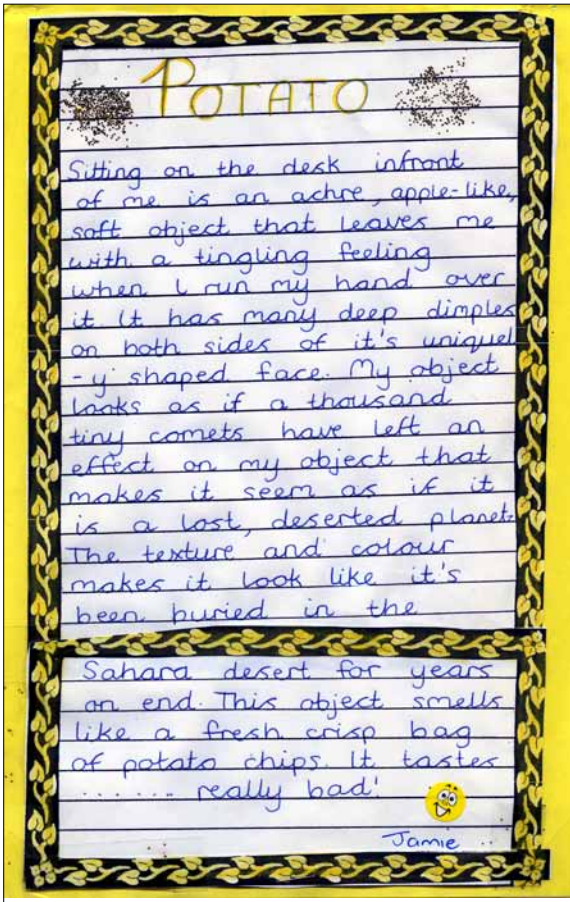 POTATO
Sitting on the desk infront
of me is an achre, apple-like,
soft object that leaves me
with a tingling feeling
when I run my hand over
it. It has many deep dimples
on both sides of it's uniquel
-y shaped face. My object
looks as if a thousand
tiny comets have left an
effect on my object that
makes it seem as if it
is a lost, deserted planet.
The texture and colour
makes it look like it's
been buried in the
Sahara desert for years
on end. This object smells
like a fresh crisp bag
of potato chips. It tastes
....... really bad!
Jamie